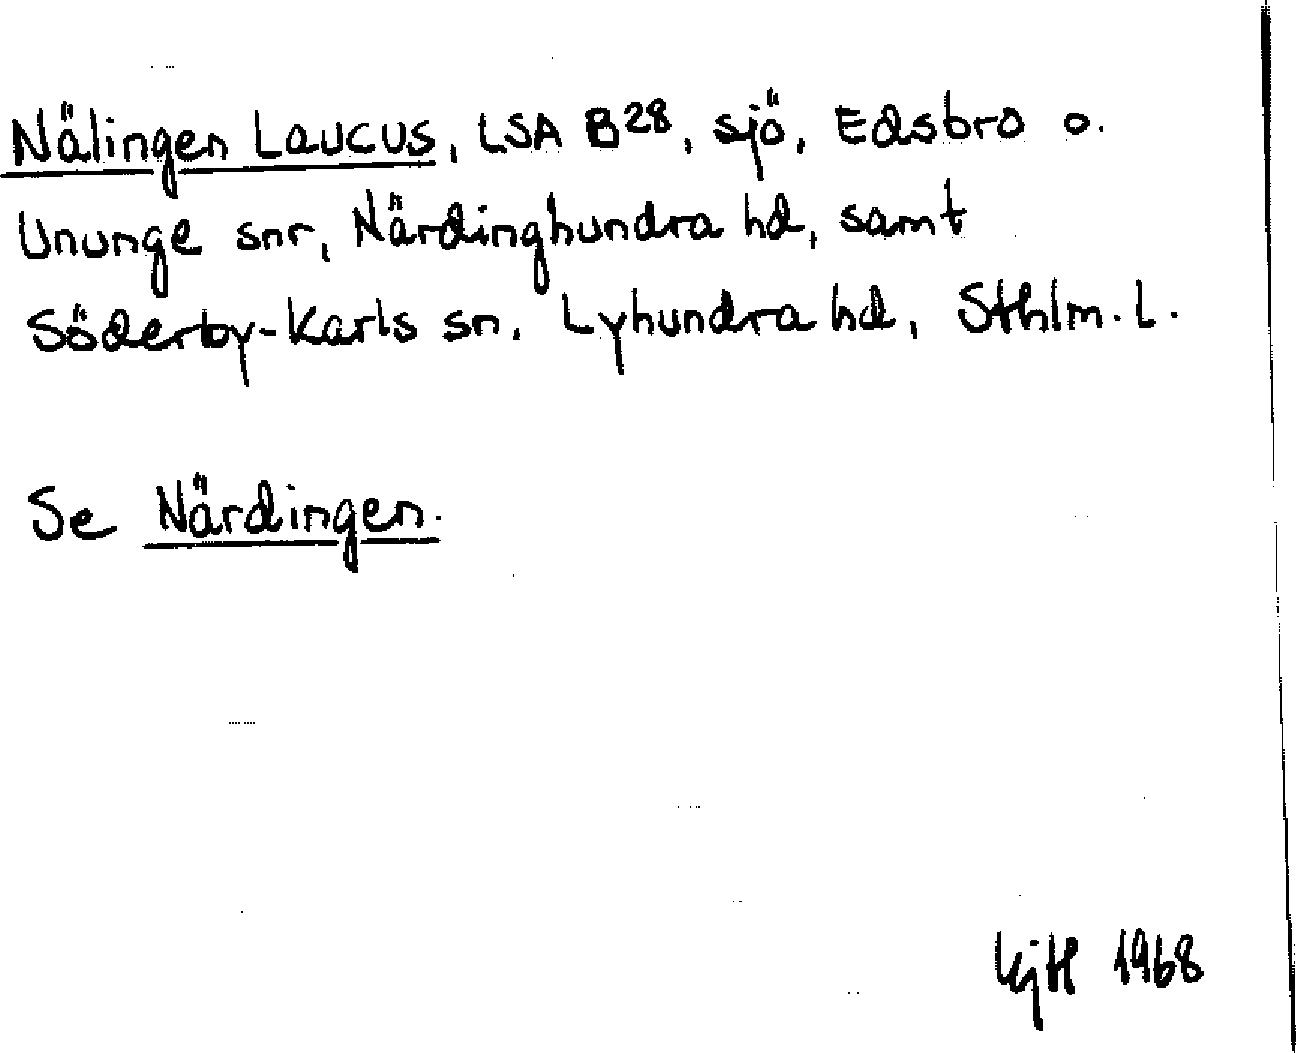 Nälingen Laucus, LSA B28, sjö, Edsbro o.
Ununge snr, Närdinghundra hd, samt
Söderby-Karls sn, Lyhundra hd, Sthlm. L.
Se Närdingen.
KjH 1968